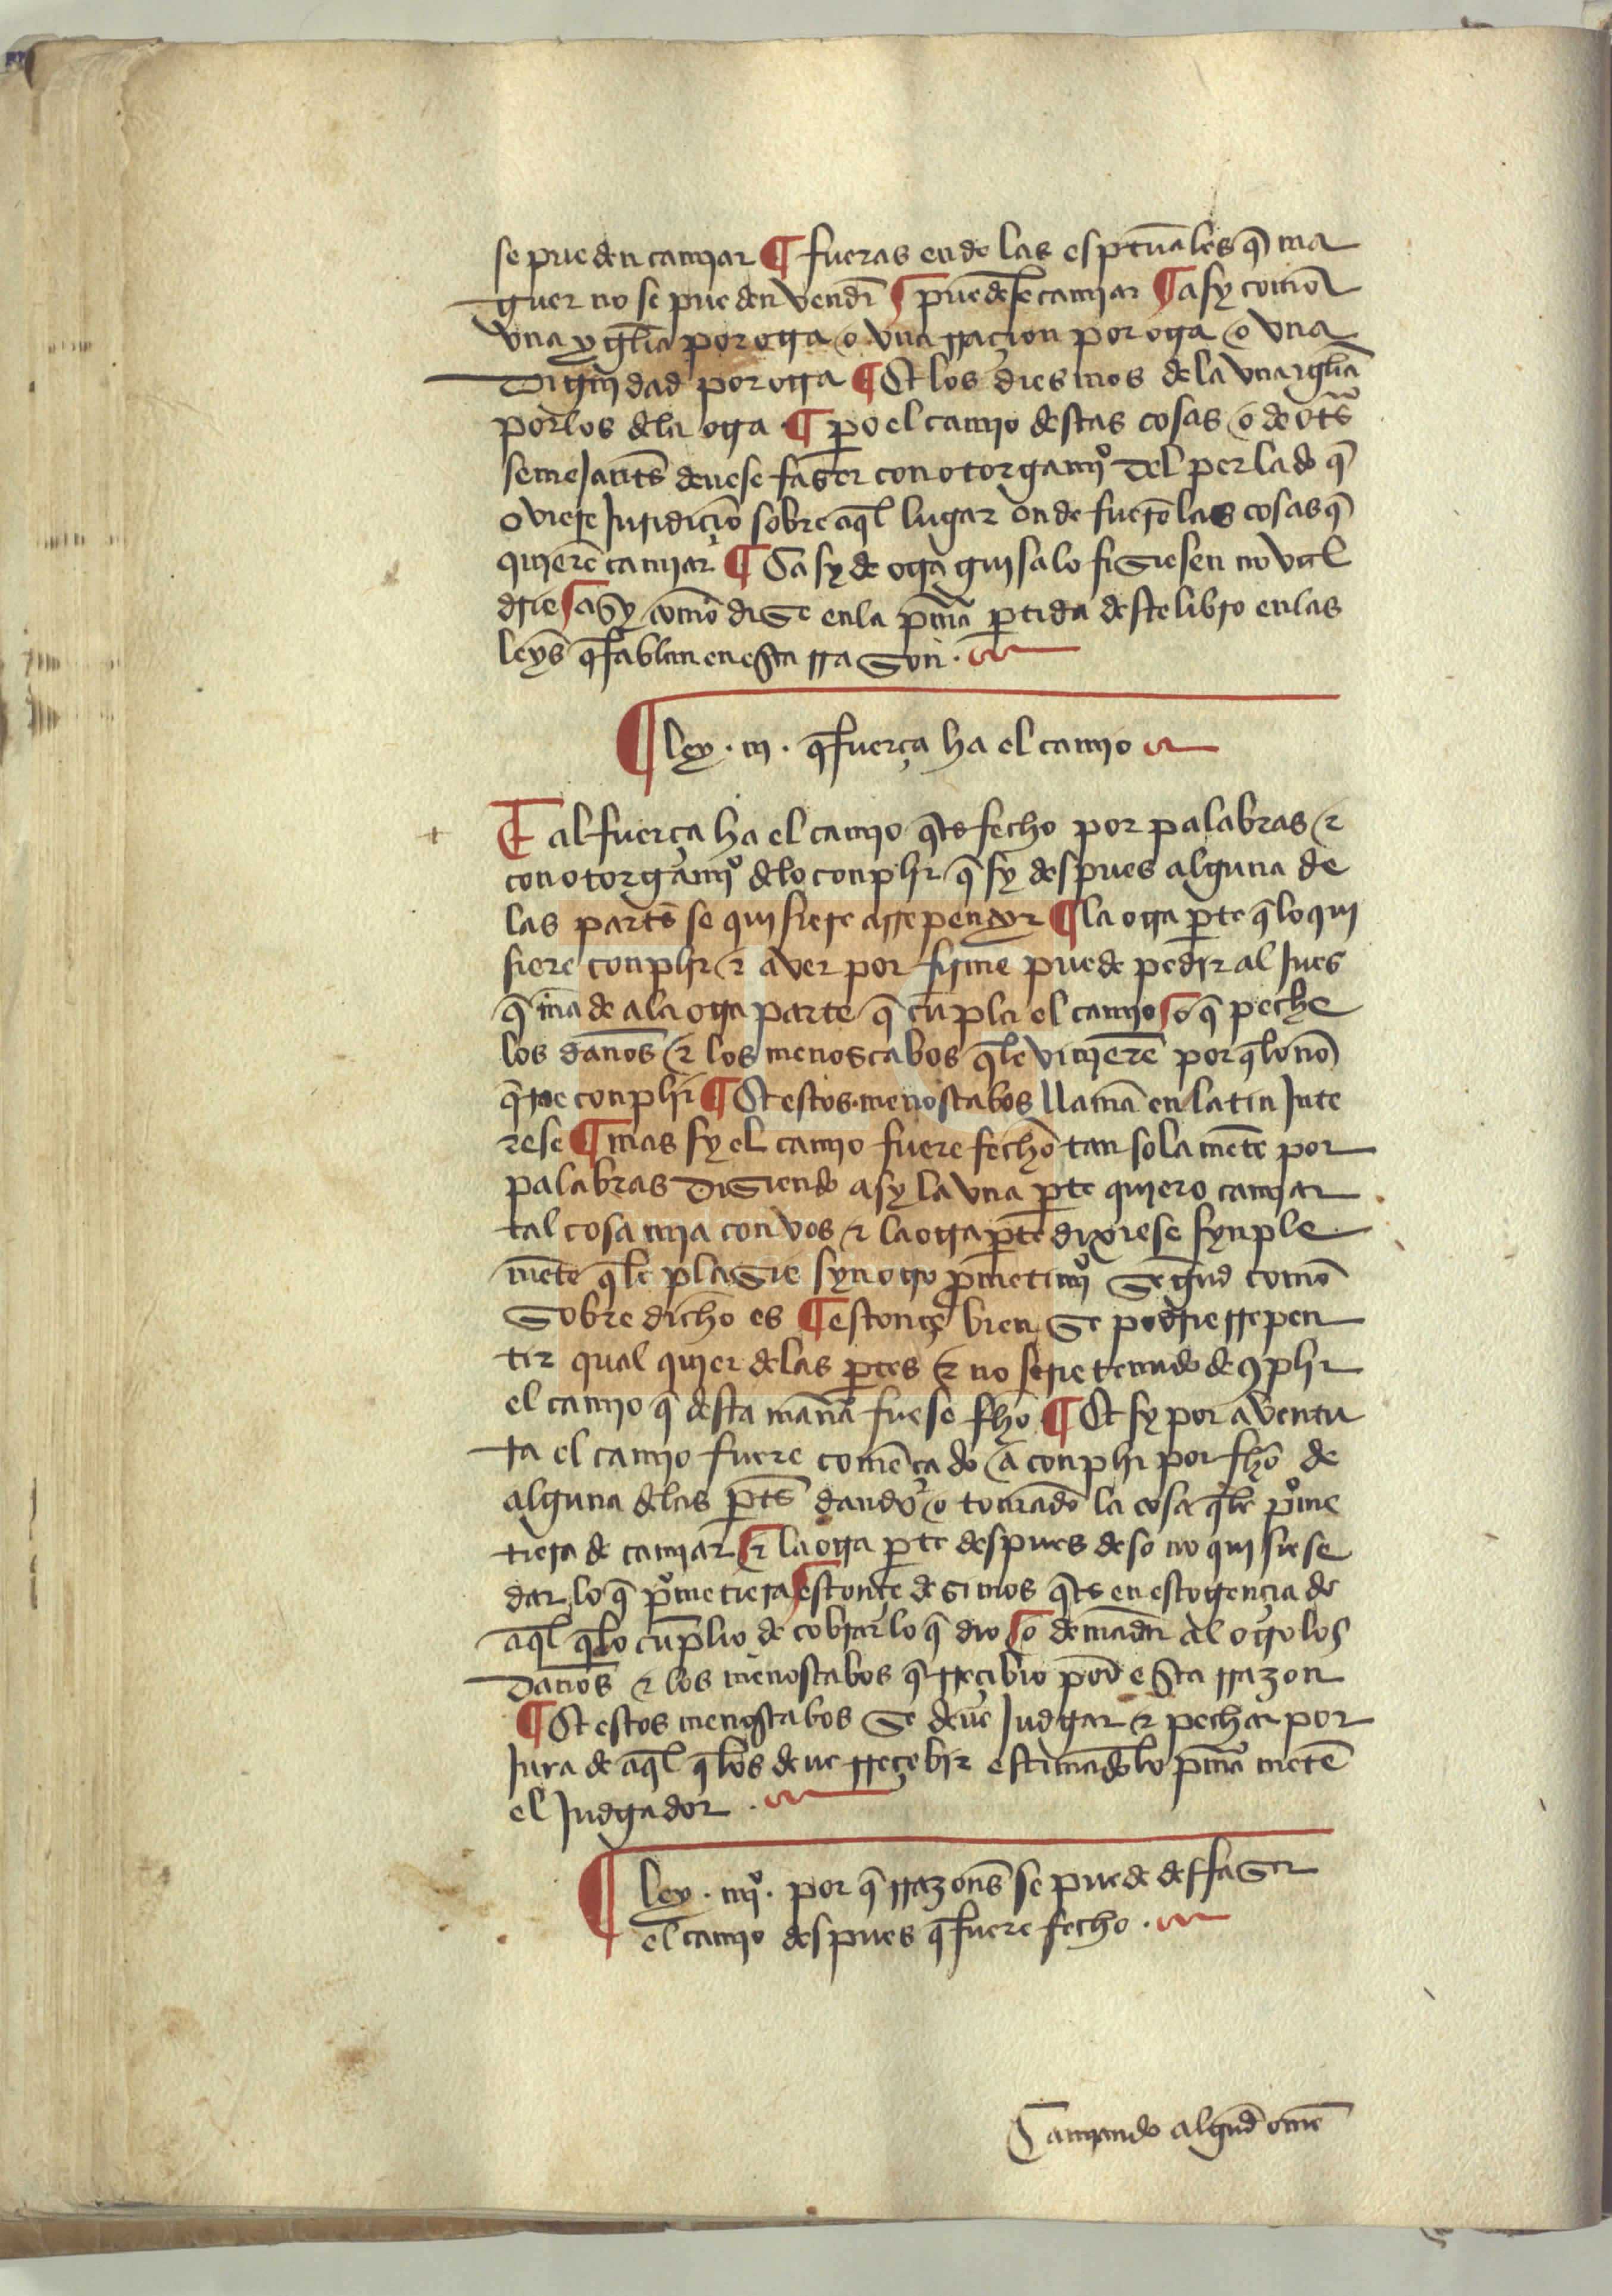 se pueden camiar ¶ fueras ende las esp̃tuales q̃ ma
guer no se pueden vendr̃ ¶ puedẽse camiar ¶ asy com̃o
vna ygl̃ia por otra o vna rraçion por otra o vna
Dignidad por otra ¶ Et los diesmos de la vna igl̃ia
por los dela otra ¶ p̃o el camio destas cosas o de ot̃s
semejant̃s deuese faser con otorgamj̊ del perlado q̃
oviere Juridiçiõ sobre aq̃l lugar onde fuerẽ las cosas q̃
quierẽ camiar ¶ Ca sy de otra guisa lo fisiesen no val
drie ¶ asy com̃o dise en la p̃ma p̃tida deste libro en las
leys̃ q̃ fablan en esta rrason .
¶ ley . iij . q̃ fuerça ha el camio
Tal fuerça ha el camio q̃ es fecho por palabras ⁊
con otorgamj̊ delo conplir q̃ sy despues alguna de
las part̃s se quisiere arrepentyr ¶ la otra p̃te q̃ lo qui
siere conplir ⁊ aver por firme puede pedir al Jues
q̃ mãde a la otra parte q̃ cũpla el camio ¶ o q̃ peche
los dan̄os ⁊ los menoscabos q̃ le vinierẽ por q̃ lo nõ
q̃re conplir ¶ Et estos menoscabos llamã en latin Inte
rese ¶ mas sy el camio fuere fecho tan sola mẽte por
palabras Disiendo asy la vna p̃te quiero camiar
tal cosa mia con vos ⁊ la otra p̃te dixiese synple
mẽte q̃ le plasie syn otro p̃metimj̊ Segund com̃o
Sobre dicho es ¶ estonçe bien se podrie rrepen
tir qual quier delas p̃tes ⁊ no serie tenudo de ꝯplir
el camio q̃ desta man̄a fuese fh̃o ¶ Et sy por aventu
ra el camio fuere comẽçado a conplir por fh̃o de
alguna delas p̃ts dando o tomãdo la cosa q̃ le p̊me
tiera de camiar ¶ ⁊ la otra p̃te despues deso no quisiese
dar lo q̃ p̊metiera ¶ estonçe desimos q̃ es en escogençia de
aq̃l q̃ lo cũplio de cobrar lo q̃ dio ¶ o demãdar al otro los
Dan̄os ⁊ los menoscabos q̃ rreçibio por esta rrazon
¶ Et estos menoscabos se deuẽ Judgar ⁊ pechar por
Jura de aq̃l q̃ los deue rreçebir estimãdolo p̃ma metẽ
el Judgador .
¶ ley . iiij̊ . por q̃ rrazons̃ se puede desfaser
el camio despues q̃ fuere fecho .
Camiando algũd om̃e